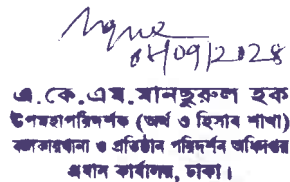 ০৮/০৭/২০২৪
এ.কে.এম.মানছুরুল হক
উপমহাপরিদর্শক (অর্থ ও হিসাব শাখা)
কলকারখানা ও প্রতিষ্ঠান পরিদর্শন অধিদপ্তর
প্রধান কার্যালয়, ঢাকা।